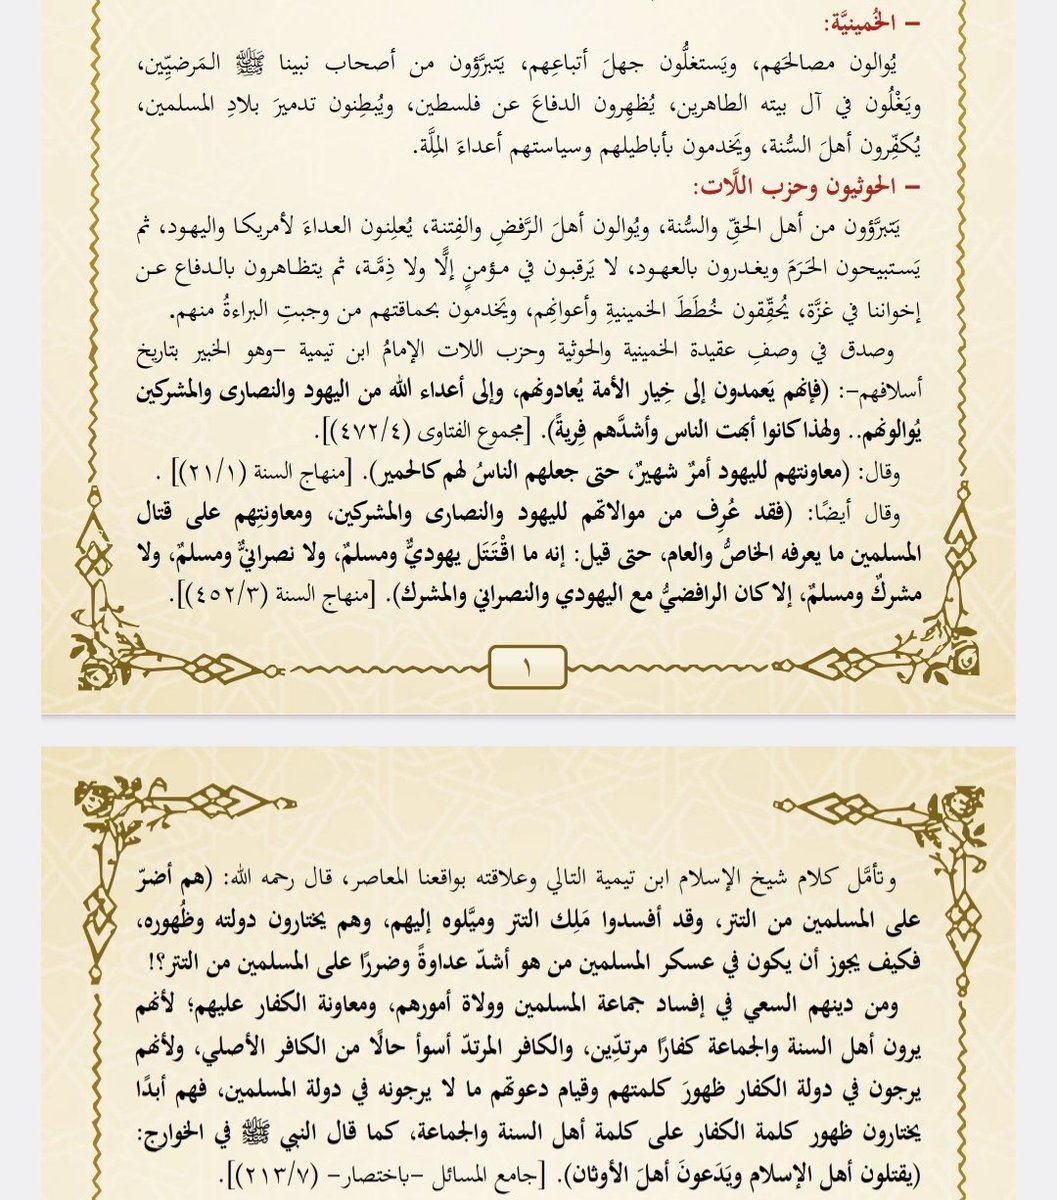 – الخُمينيَّة:
يُوالون مصالحَهم، ويَستغلُّون جهلَ أتباعِهم، يَتبرَّؤون من أصحاب نبينا ﷺ المَرضيِّين،
ويَغْلُون في آل بيته الطاهرين، يُظهِرون الدفاعَ عن فلسطين، ويُبطِنون تدميرَ بلادِ المسلمين،
يُكفِّرون أهلَ السُّنة، ويَخدمون بأباطيلهم وسياستهم أعداءَ المِلَّة.
– الحوثيون وحزب اللَّات:
يَتبرَّؤون من أهل الحقِّ والسُّنة، ويُوالون أهلَ الرَّفضِ والفِتنة، يُعلِنون العداءَ لأمريكا واليهود، ثم
يَستبيحون الحَرَمَ ويغدرون بالعهود، لا يَرقبون في مؤمنٍ إلًّا ولا ذِمَّة، ثم يتظاهرون بالدفاع عن
إخواننا في غزَّة، يُحقِّقون خُطَطَ الخمينيةِ وأعوانِهم، ويَخدمون بحماقتهم من وجبتِ البراءةُ منهم.
وصدق في وصفِ عقيدة الخمينية والحوثية وحزب اللات الإمامُ ابن تيمية –وهو الخبير بتاريخ
أسلافهم–: (فإنهم يَعمدون إلى خِيار الأمة يُعادونهم، وإلى أعداء الله من اليهود والنصارى والمشركين
يُوالونهم.. ولهذا كانوا أبهت الناس وأشدَّهم فِريةً). [مجموع الفتاوى (٤٧٢/٤)].
وقال: (معاونتهم لليهود أمرٌ شهيرٌ، حتى جعلهم الناسُ لهم كالحمير). [منهاج السنة (٢١/١)] .
وقال أيضًا: (فقد عُرِف من موالاتهم لليهود والنصارى والمشركين، ومعاونتِهم على قتال
المسلمين ما يعرفه الخاصُّ والعام، حتى قيل: إنه ما اقْتَتَل يهوديٌّ ومسلمٌ، ولا نصرانيٌّ ومسلمٌ، ولا
مشركٌ ومسلمٌ، إلا كان الرافضيُّ مع اليهودي والنصراني والمشرك). [منهاج السنة (٤٥٢/٣)].
١
وتأمَّل كلام شيخ الإسلام ابن تيمية التالي وعلاقته بواقعنا المعاصر، قال رحمه الله: (هم أضرّ
على المسلمين من التتر، وقد أفسدوا مَلِك التتر وميَّلوه إليهم، وهم يختارون دولته وظُهوره،
فكيف يجوز أن يكون في عسكر المسلمين من هو أشدّ عداوةً وضررًا على المسلمين من التتر؟!
ومن دينهم السعي في إفساد جماعة المسلمين وولاة أمورهم، ومعاونة الكفار عليهم؛ لأنهم
يرون أهل السنة والجماعة كفارًا مرتدِّين، والكافر المرتدّ أسوأ حالًا من الكافر الأصلي، ولأنهم
يرجون في دولة الكفار ظهورَ كلمتهم وقيام دعوتهم ما لا يرجونه في دولة المسلمين، فهم أبدًا
يختارون ظهور كلمة الكفار على كلمة أهل السنة والجماعة، كما قال النبي ﷺ في الخوارج:
(يقتلون أهل الإسلام ويَدَعونَ أهلَ الأوثان). [جامع المسائل –باختصار– (٢١٣/٧)].